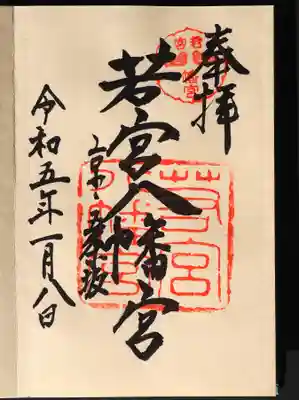 奉拝
若宮八幡宮
五条坂
令和五年一月八日
若宮
八幡宮